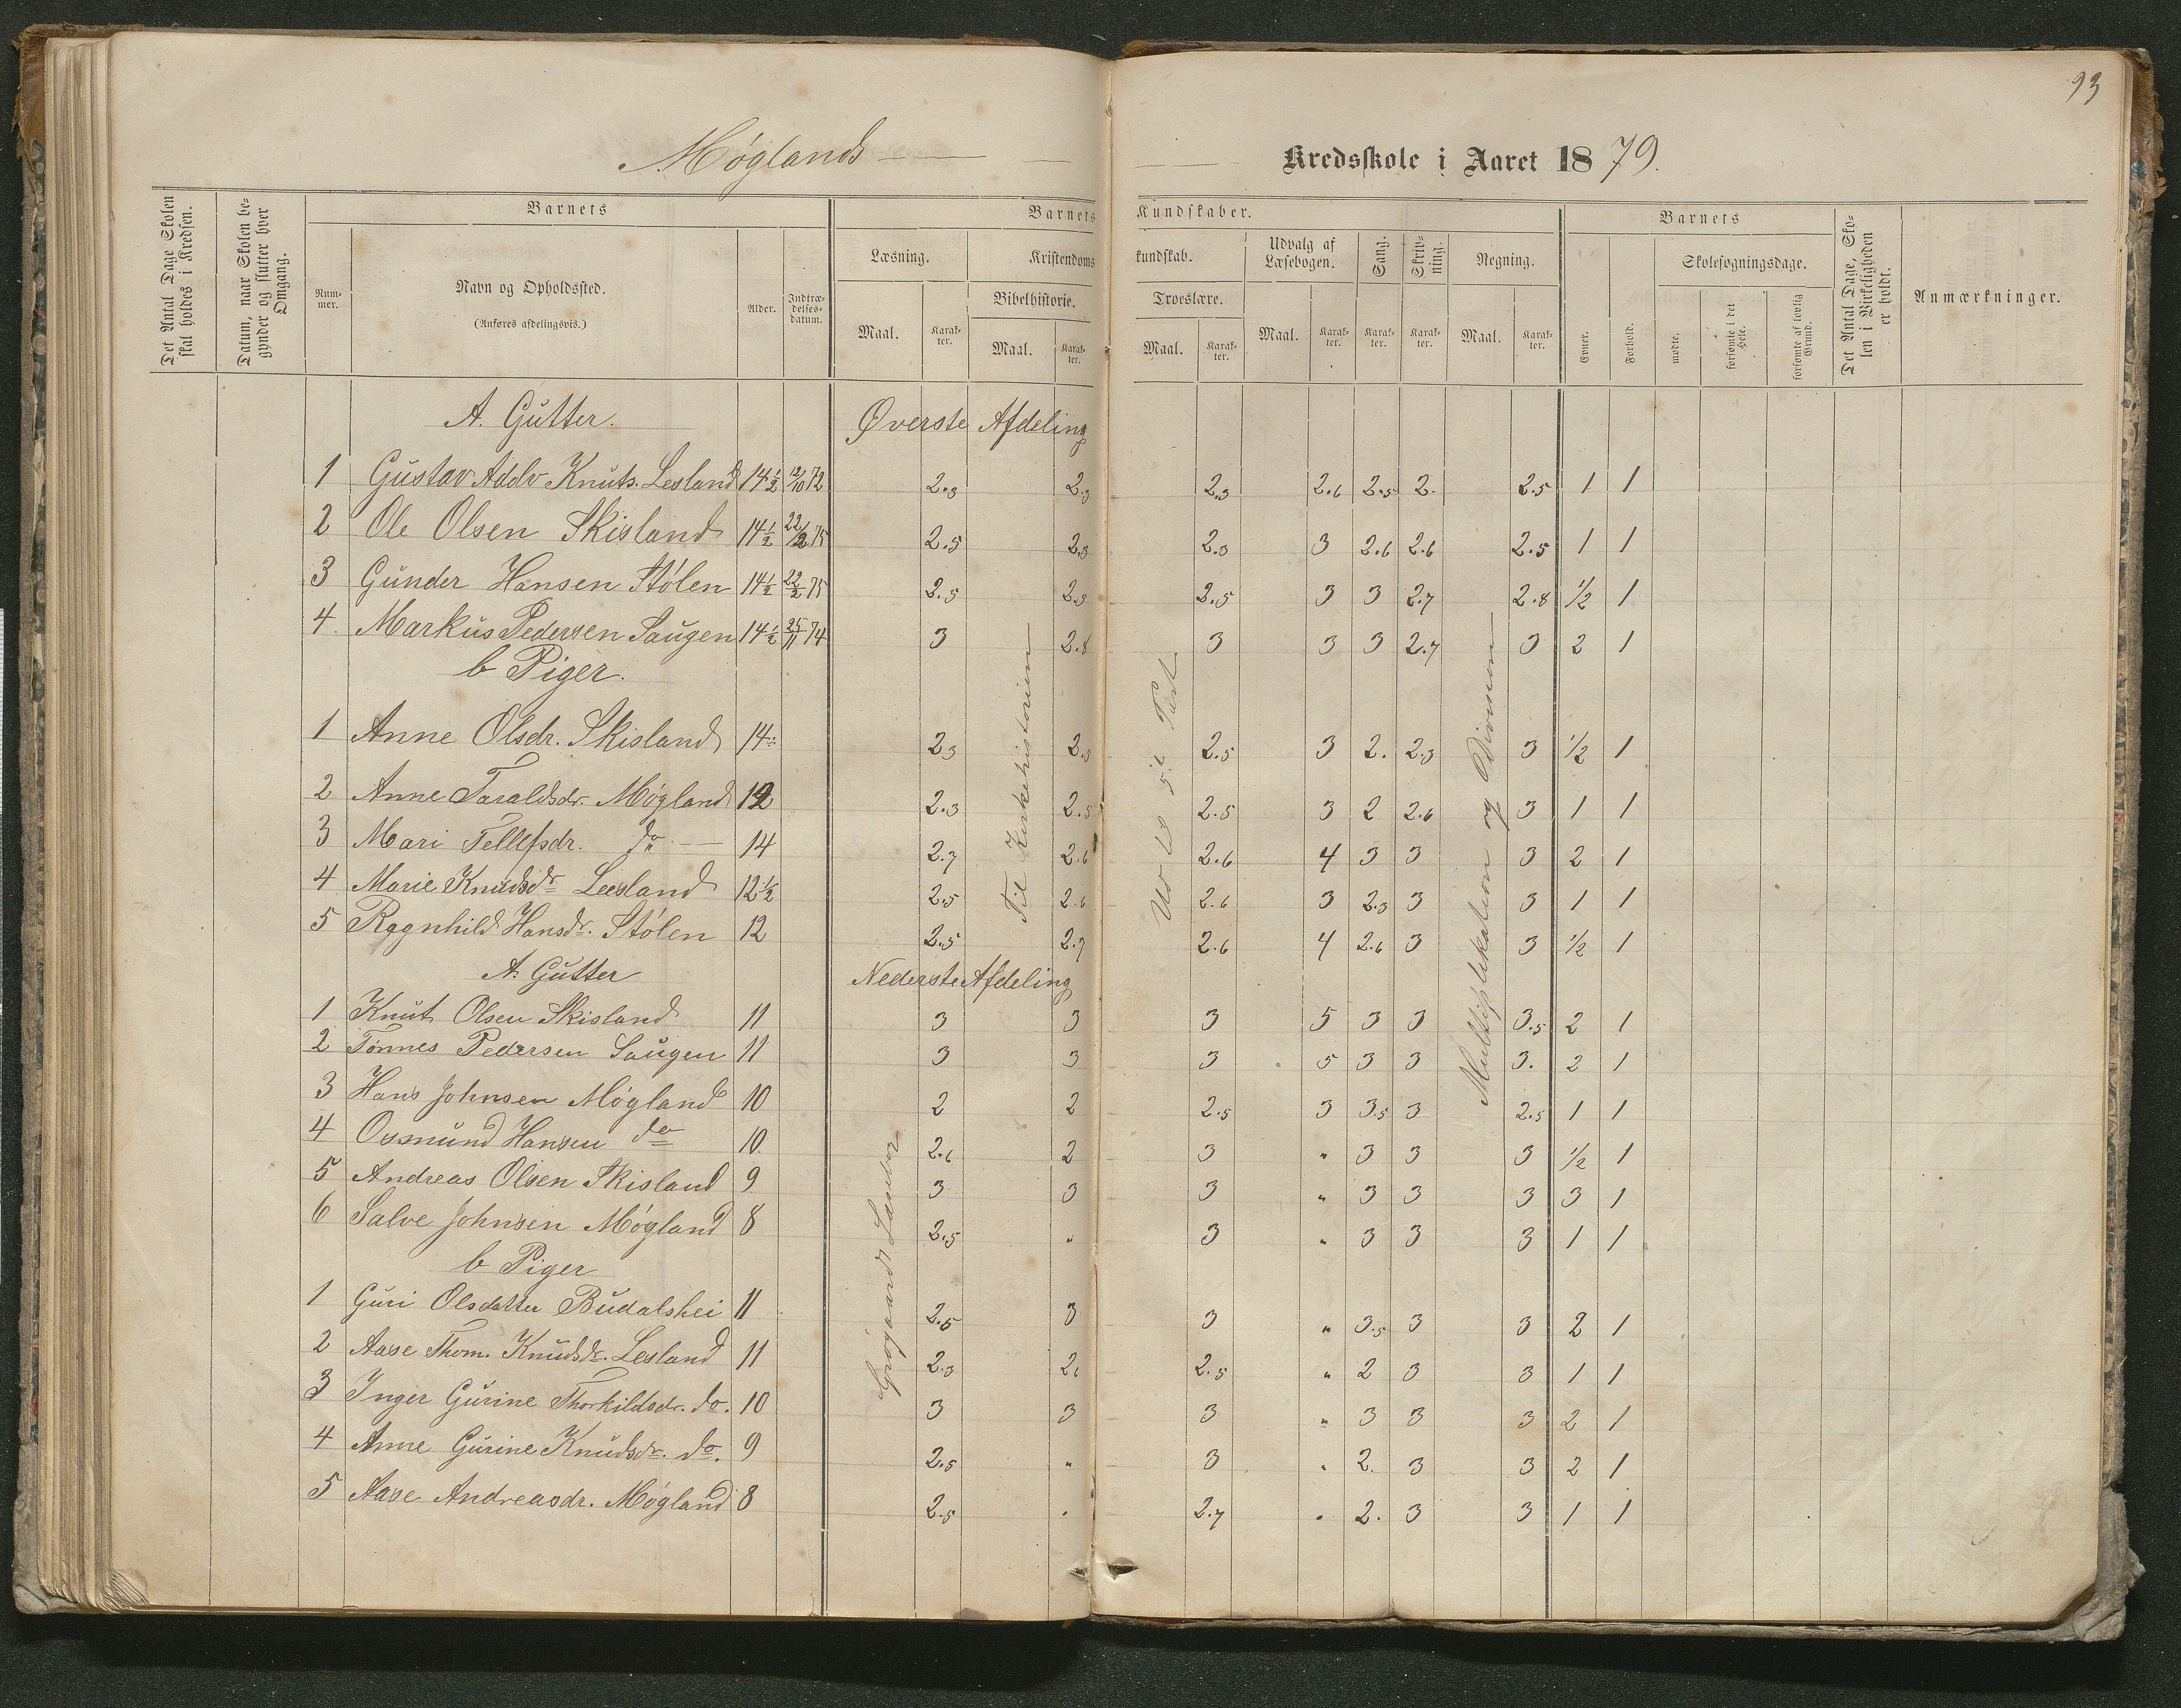 93
Møglands
Kredsskole i Aaret 1879.
Det Antal Dage Skolen skal holdes i Kredsen.
Datum, naar Skolen begynder og slutter hver Omgang.
Barnets
Nummer.
Navn og Opholdssted.
(Anføres afdelingsvis.)
Alder.
Indtrædelses-datum.
Barnets Kundskaber.
Læsning.
Maal.
Karakter.
Kristendomskundskab.
Bibelhistorie.
Maal.
Karakter.
Troeslære.
Maal.
Karakter.
Udvalg af Læsebogen.
Maal.
Karakter.
Sang.
Karakter.
Skrivning.
Karakter.
Regning.
Maal.
Karakter.
Barnets
Evner.
Forhold.
Skolesøgningsdage.
mødte.
forsømte i det Hele.
forsømte af lovlig Grund.
Det Antal Dage, Skolen i Virkeligheden er holdt.
Anmærkninger.
A. Gutter. Øverste Afdeling
1 Gustav Adolv Knuts. Lesland 14½ 12/10 72 2.3 2.3 2.3 2.6 2.5 2. 2.5 1 1
2 Ole Olsen Skisland 14½ 22/2 75 2.5 2.3 2.3 3 2.6 2.6 2.5 1 1
3 Gunder Hansen Stølen 14½ 22/2 75 2.5 2.5 2.5 3 3 2.7 2.8 ½ 1
4. Markus Pedersen Saugen 14½ 25/11 74 3 2.8 3 3 3 2.7 3 2 1
b Piger.
1 Anne Olsdr. Skisland 14 2.3 2.5 2.5 3 2. 2.3 3 ½ 1
2 Anne Taraldsdr. Møgland 12 2.3 2.5 2.5 3 2 2.6 3 1 1
3 Mari Tellefsdr. do 14 2.7 2.6 2.6 4 3 3 3 2 1
4 Marie Knudsdr Leesland 12½ 2.5 2.6 2.6 3 2.3 3 3 1 1
5 Ragnhild Hansdr. Stølen 12 2.5 2.7 2.6 4 2.6 3 3 ½ 1
Til Kirkehistorien
Ud til 5te Part
Multiplikation og Division
A. Gutter Nederste Afdeling
1 Knut Olsen Skisland 11 3 3 3 5 3 3 3.5 2 1
2 Tønnes Pedersen Saugen 11 3 3 3 5 3 3 3. 2 1
3 Hans Johnsen Møgland 10 2 2 2.5 3 3.5 3 2.5 1 1
4 Osmund Hansen do 10. 2.6 2 3 " 3 3 3 ½ 1
5 Andreas Olsen Skisland 9 3 3 3 " 3 3 3 3 1
6 Salve Johnsen Møgland 8 2.5 " 3 " 3 3 3 1 1
b Piger
1 Guri Olsdatter Budalshei 11 2.5 3 3 " 3.5 3 3 2 1
2 Aase Thom. Knudsdr. Lesland 11 2.3 2. 2.5 " 2 3 3 1 1
3 Inger Gurine Thorkildsdr. do. 10 3 3 3 " 3 3 3 2 1
4 Anne Gurine Knudsdr. do. 9 2.5 " 3 " 2. 3 3 2 1
5 Aase Andreasdr. Møgland 8 2.5 " 2.7 " 2. 3 3 1 1